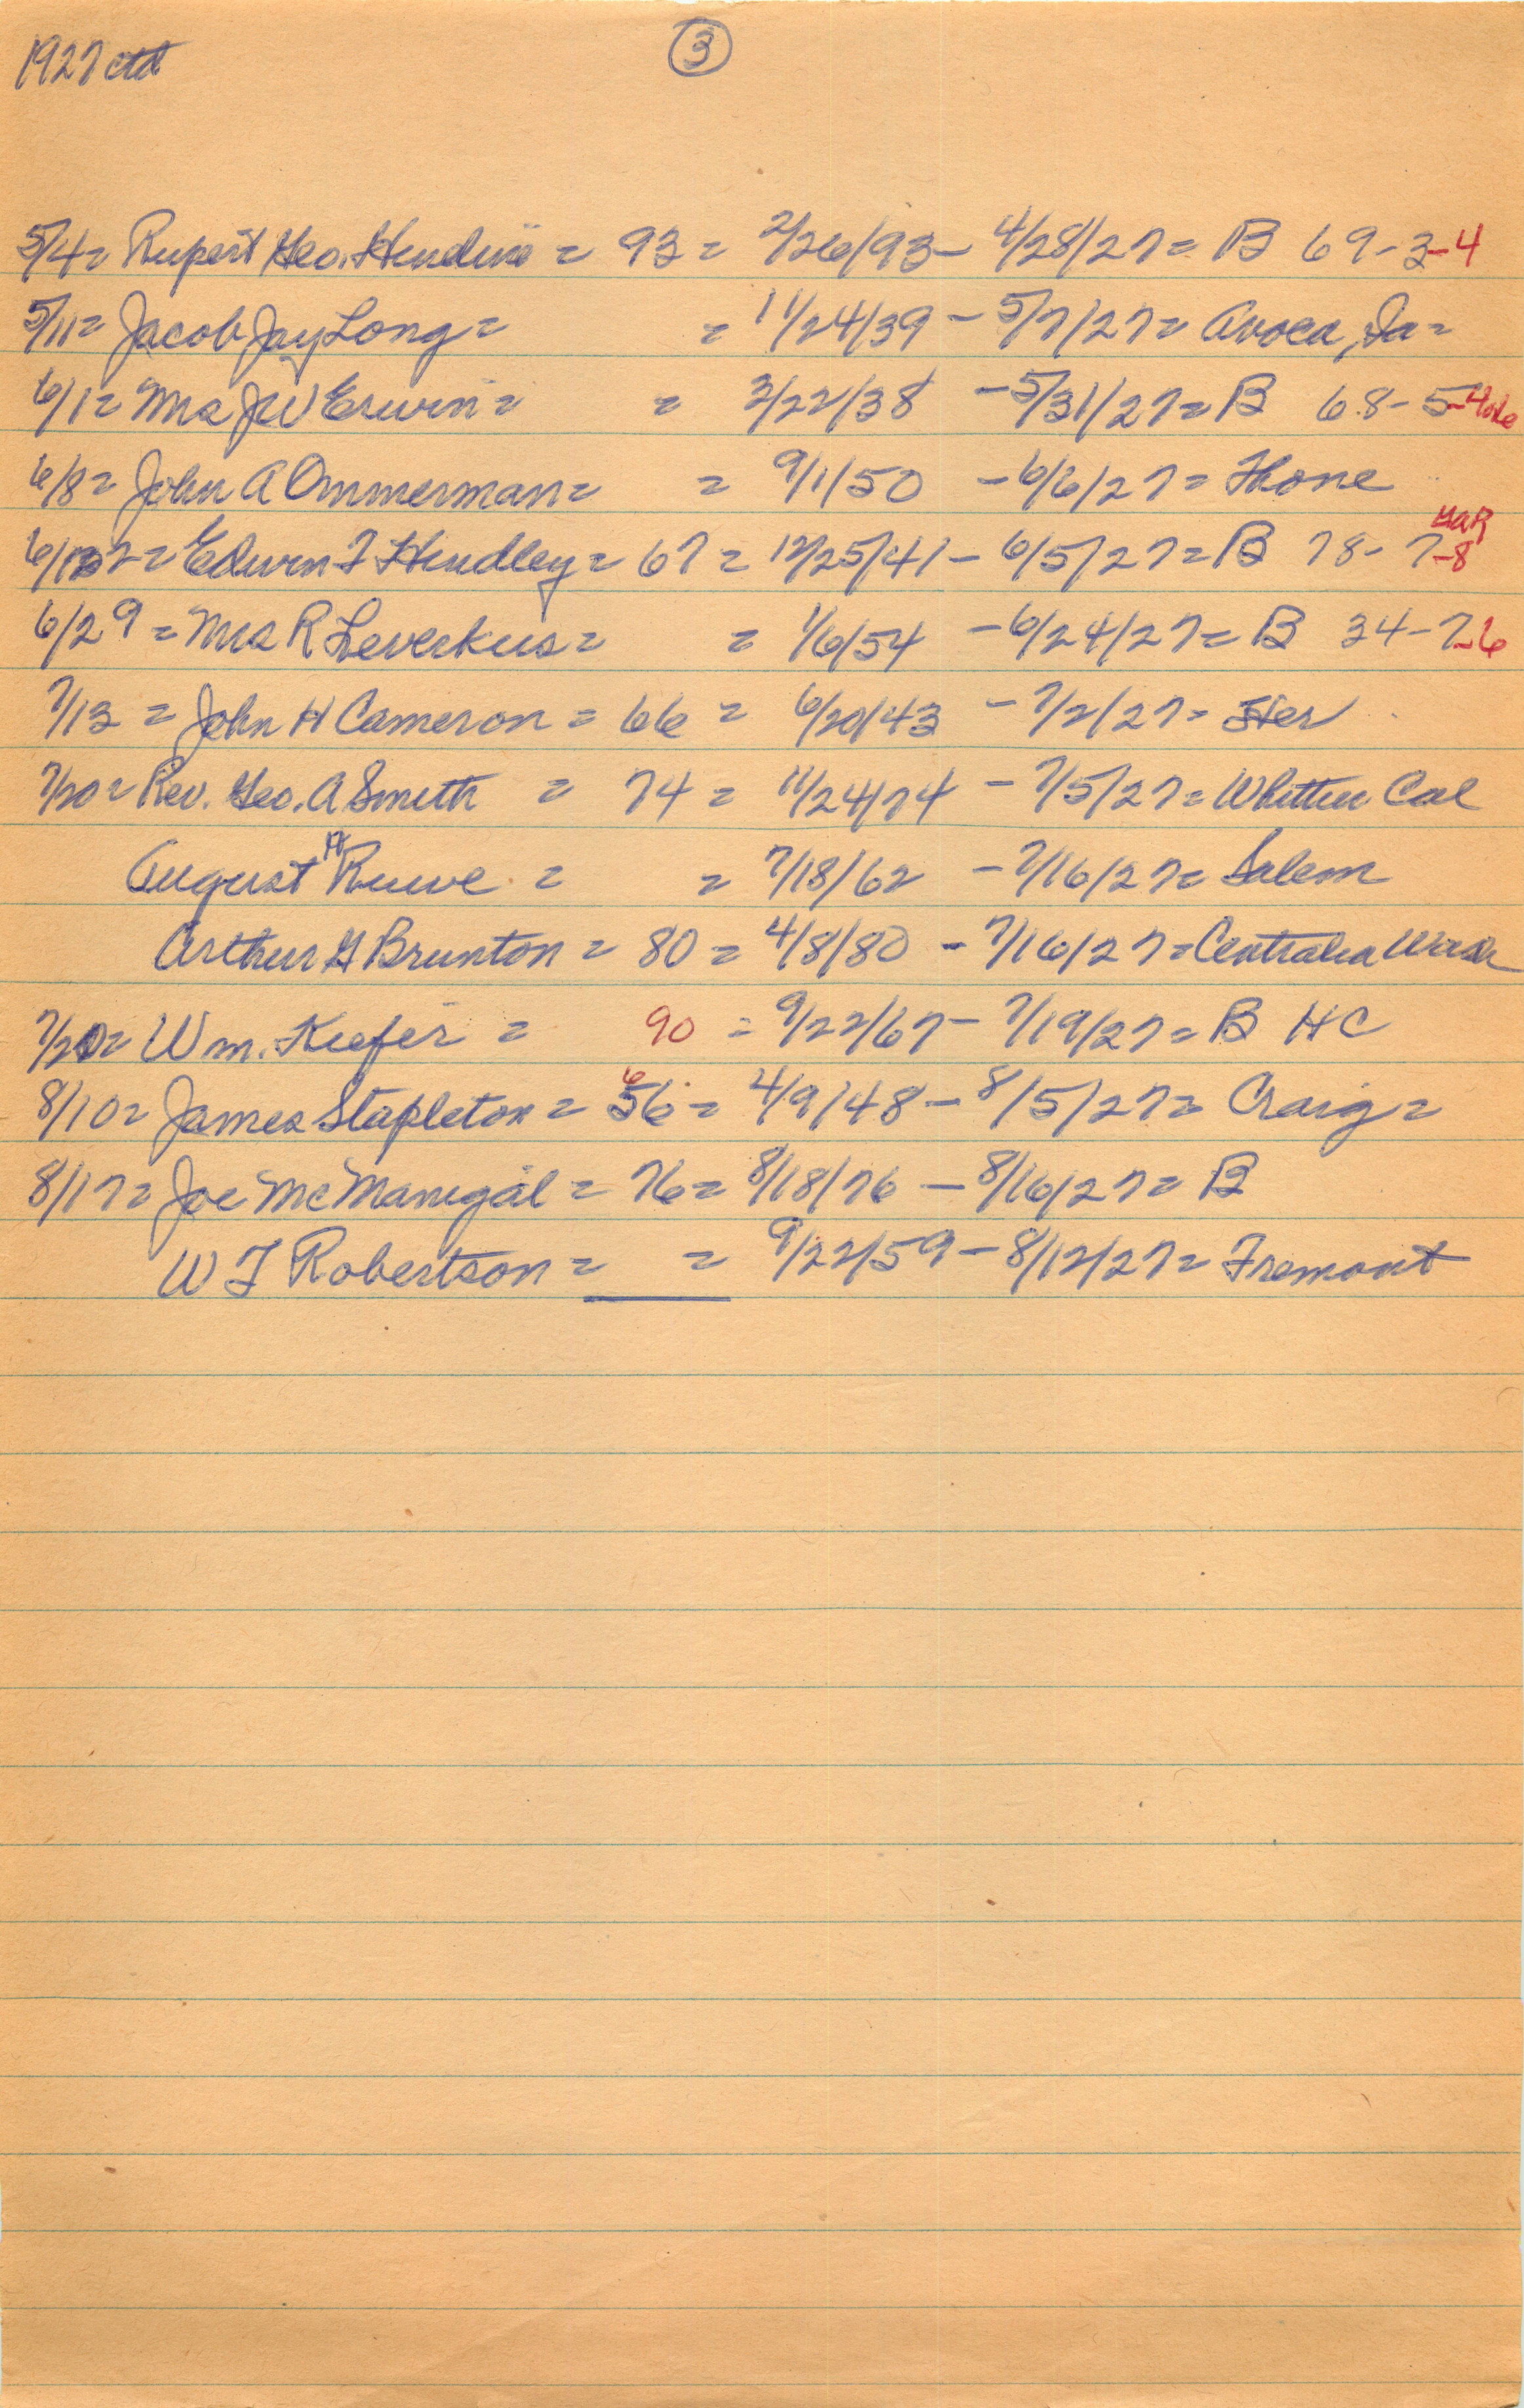 1927 ctd ③
5/4= Rupert Geo. Hindine = 93 = 2/26/93- 4/28/27= B 69-3-4
5/11= Jacob Jay Long = = 11/24/39 - 5/7/27= Avoca, Ia=
6/1= Mrs JW Erwin = = 3/22/38 - 5/31/27= B 68-5-
6/8= John A Ommerman= = 9/1/50 - 6/6/27= Thone
6/ 2= Edwin F Hindley = 67 = 12/25/41- 6/5/27= B 78-7-8
6/29 = Mrs R Leverkus = = 1/6/54 - 6/24/27= B 34-7-6
7/13 = John H Cameron = 66 = 6/20/43 - 7/2/27= Her
7/20= Rev. Geo. A Smith = 74 = 11/24/74 - 7/5/27= Whittier Cal
August H Ruwe = = 7/18/62 - 7/16/27= Salem
Arthur G Brunton = 80 = 4/8/80 - 7/16/27= Centralia Wash
7/20= Wm. Keefer = 90 = 9/22/67- 7/19/27= B HC
8/10= James Stapleton = 56 6 = 4/9/48 - 8/5/27= Craig =
8/17= Joe McManigal = 76= 8/18/76 - 8/16/27= B
W F Robertson = = 9/22/59 - 8/12/27= Fremont